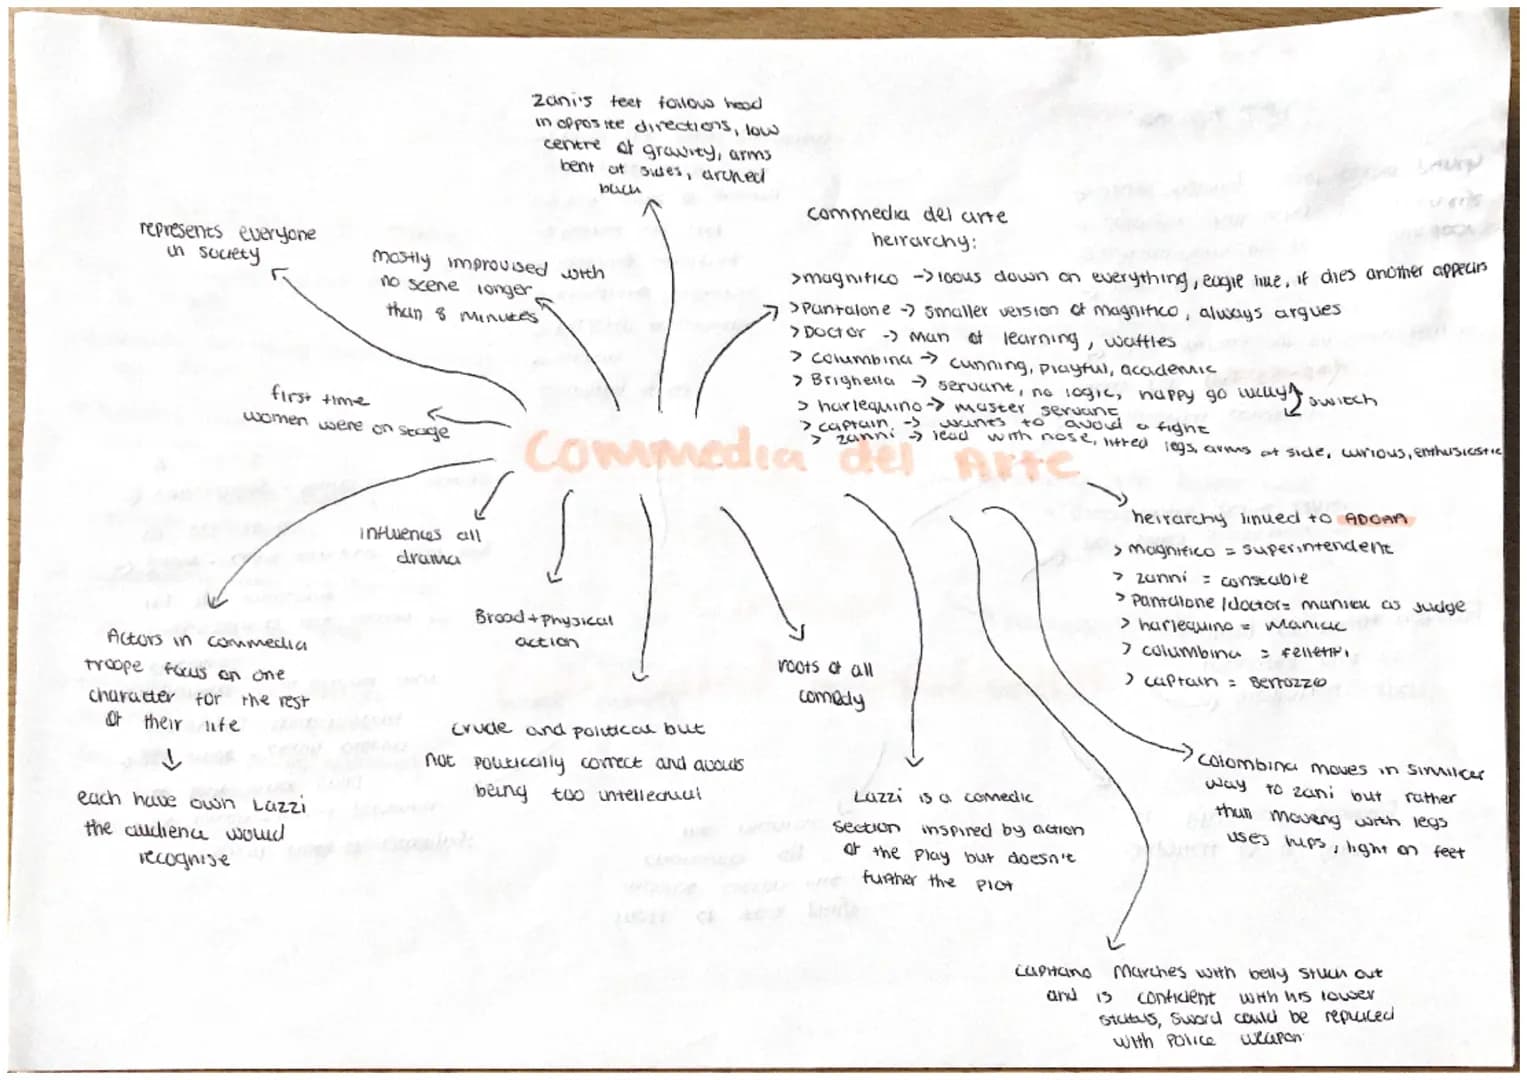 Zani's feet follow head
in opposite directions, low
centre of gravity, arms
bent at sides, arched
back
represents everyone
in society
mostly improvised with
no scene longer
than 8 minutes
first time
women were on stage
commedia del arte
heirarchy:
>magnifico -> looks down on everything, eagle like, if dies another appears
>Pantalone -> smaller version of magnifico, always argues
>Doctor -> man of learning, waffles
> columbina -> cunning, playful, academic
> Brighella -> servant, no logic, happy go lucky
> harlequino -> master servant
switch
> captain -> wants to avoid a fight
> zanni -> lead with nose, lifted legs, arms at side, curious, enthusiastic
Commedia del Arte
influences all
drama
Broad + physical
action
roots of all
comedy
heirarchy linked to ADOAA
> magnifico = superintendent
> zanni = constable
> Pantalone /doctor= maniac as judge
> harlequino = maniac
> columbina = feletti
> captain = Bertozzo
Actors in commedia
troope focus on one
character for the rest
of their life
each have own Lazzi
the audience would
recognise
crude and political but
not politically correct and avoids
being too intellectual
Lazzi is a comedic
section inspired by action
of the play but doesn't
further the plot
colombina moves in similar
way to zani but rather
than moving with legs
uses hips, light on feet
capitano marches with belly stuck out
and is confident with his lower
status, sword could be replaced
with police weapon